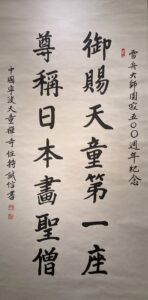 雪舟大師圓寂五〇〇週年紀念
御賜天童第一座
尊稱日本畫聖僧
中國寧波天童禪寺住持誠信書